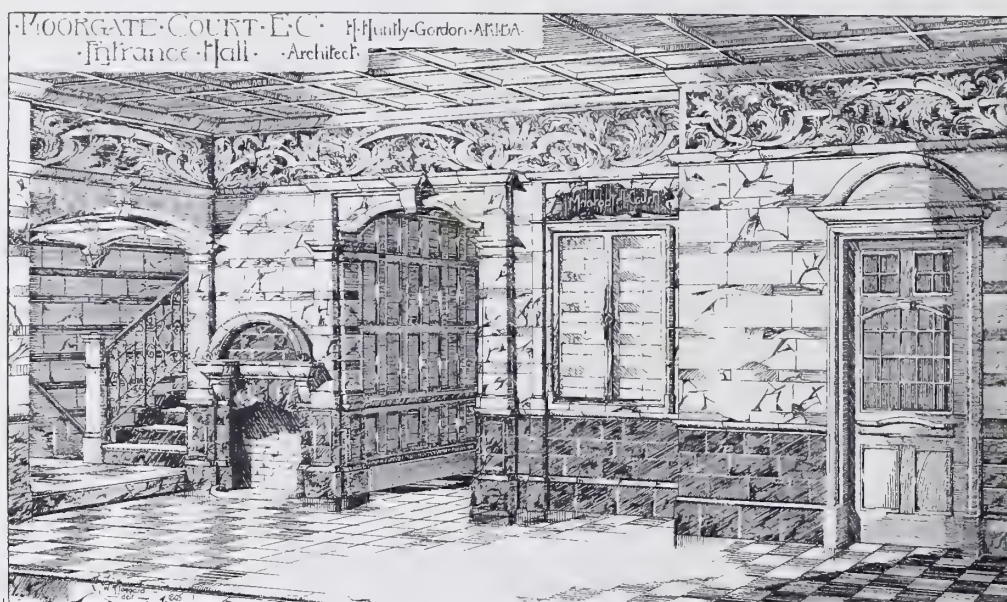 MOORGATE·COURT·E·C· H·Huntly-Gordon·ARIBA·
·Entrance·Hall· ·Architect·
Moorgate Court
W
del